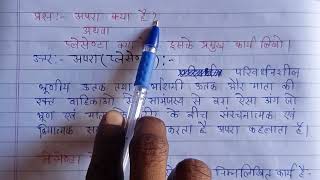 प्रश्न:- अपरा क्या है?
अथवा
प्लेसेण्टा क्या इसके प्रमुख कार्य लिखो।
उत्तर:- अपरा (प्लेसेण्टा):-
परिवर्धनशील
भ्रूणीय ऊतक तथा ऊतक और माता की
रक्त वाहिकाओं सामंजस्य से बना ऐसा अंग जो
भ्रूण एवं के बीच संरचनात्मक एवं
क्रियात्मक करता है अपरा कहलाता है।
निम्नलिखित कार्य है-